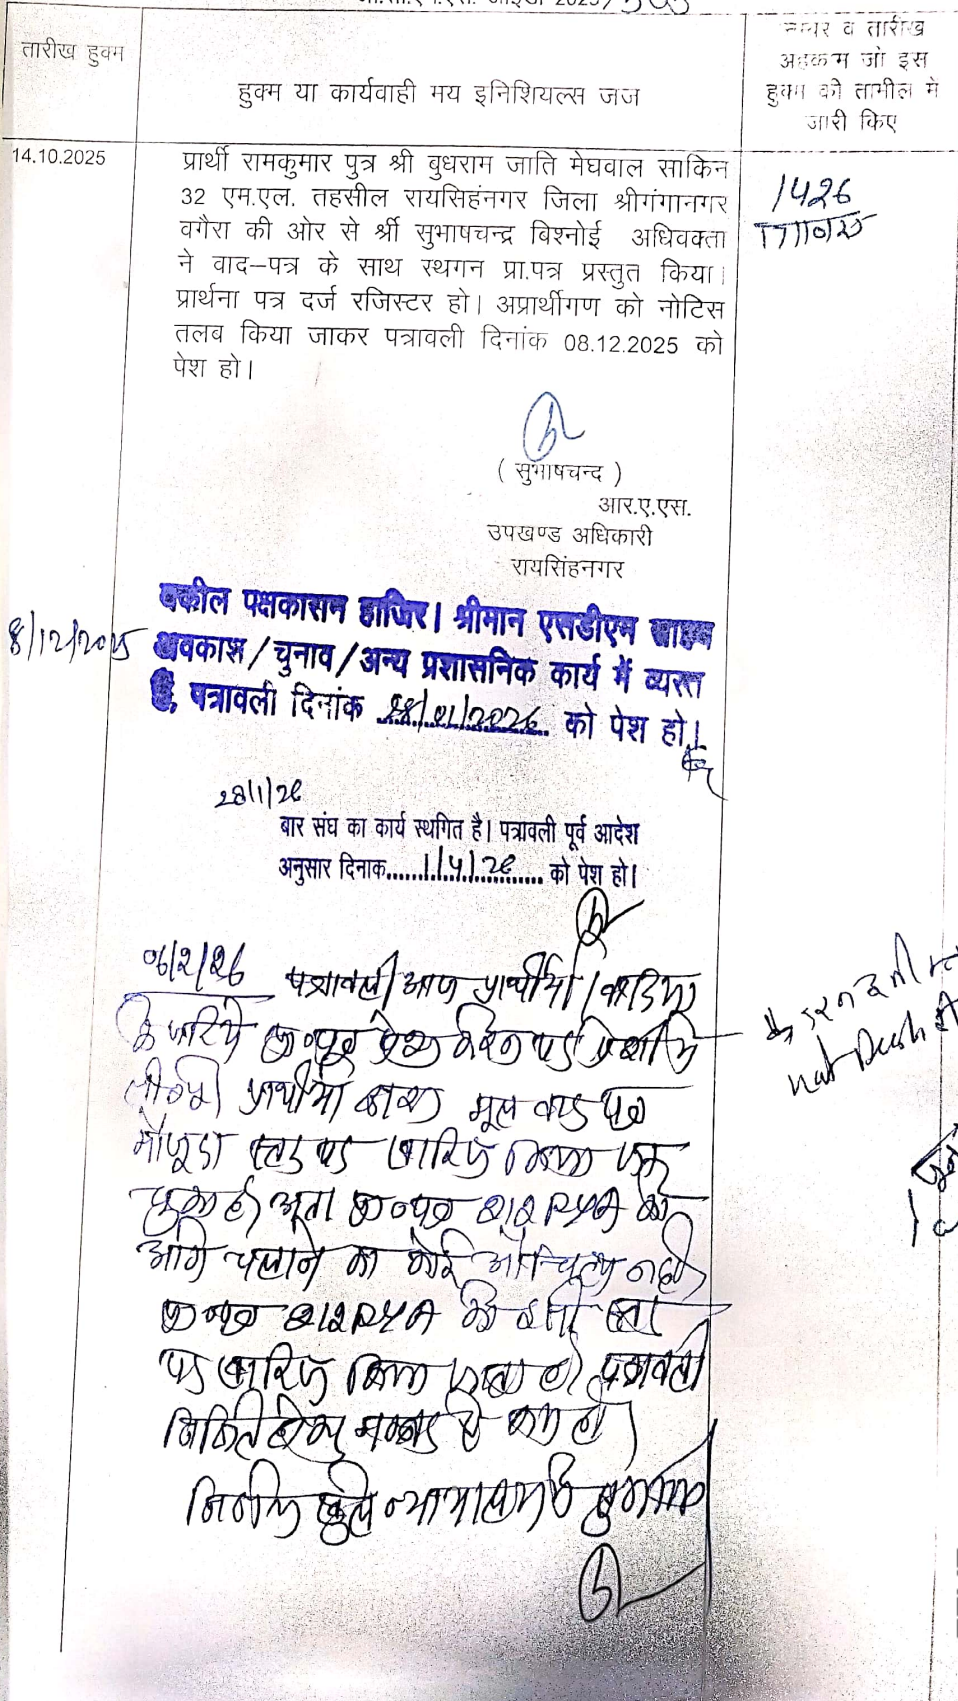 तारीख हुक्म
हुक्म या कार्यवाही मय इनिशियल्स जज
नम्बर व तारीख
अहकाम जो इस
हुक्म की तामील मे
जारी किए
14.10.2025
प्रार्थी रामकुमार पुत्र श्री बुधराम जाति मेघवाल साकिन
32 एम.एल. तहसील रायसिहंनगर जिला श्रीगंगानगर
वगैरा की ओर से श्री सुभाषचन्द्र बिश्नोई अधिवक्ता
ने वाद–पत्र के साथ स्थगन प्रा.पत्र प्रस्तुत किया।
प्रार्थना पत्र दर्ज रजिस्टर हो। अप्रार्थीगण को नोटिस
तलब किया जाकर पत्रावली दिनांक 08.12.2025 को
पेश हो।
1426
17/10/25
( सुभाषचन्द )
आर.ए.एस.
उपखण्ड अधिकारी
रायसिंहनगर
8/12/2025
वकील पक्षकारान हाजिर। श्रीमान एसडीएम साहब
अवकाश/चुनाव/अन्य प्रशासनिक कार्य में व्यस्त
है, पत्रावली दिनांक 28/01/2026 को पेश हो।
28/1/26
बार संघ का कार्य स्थगित है। पत्रावली पूर्व आदेश
अनुसार दिनाक......1/4/26......को पेश हो।
06/2/26 पत्रावली आज प्रार्थीया
के जरिये पेश करने पर
प्रार्थीया द्वारा मूल वाद पत्र
मौजूदा स्तर पर खारिज किया जा
चुका है। अतः 212 RTA को
आगे चलाने का कोई औचित्य नही
212 RTA को इसी स्तर
पर खारिज किया जाता है। पत्रावली
नम्बर से कम हो।
निर्णय खुले न्यायालय में सुनाया
not